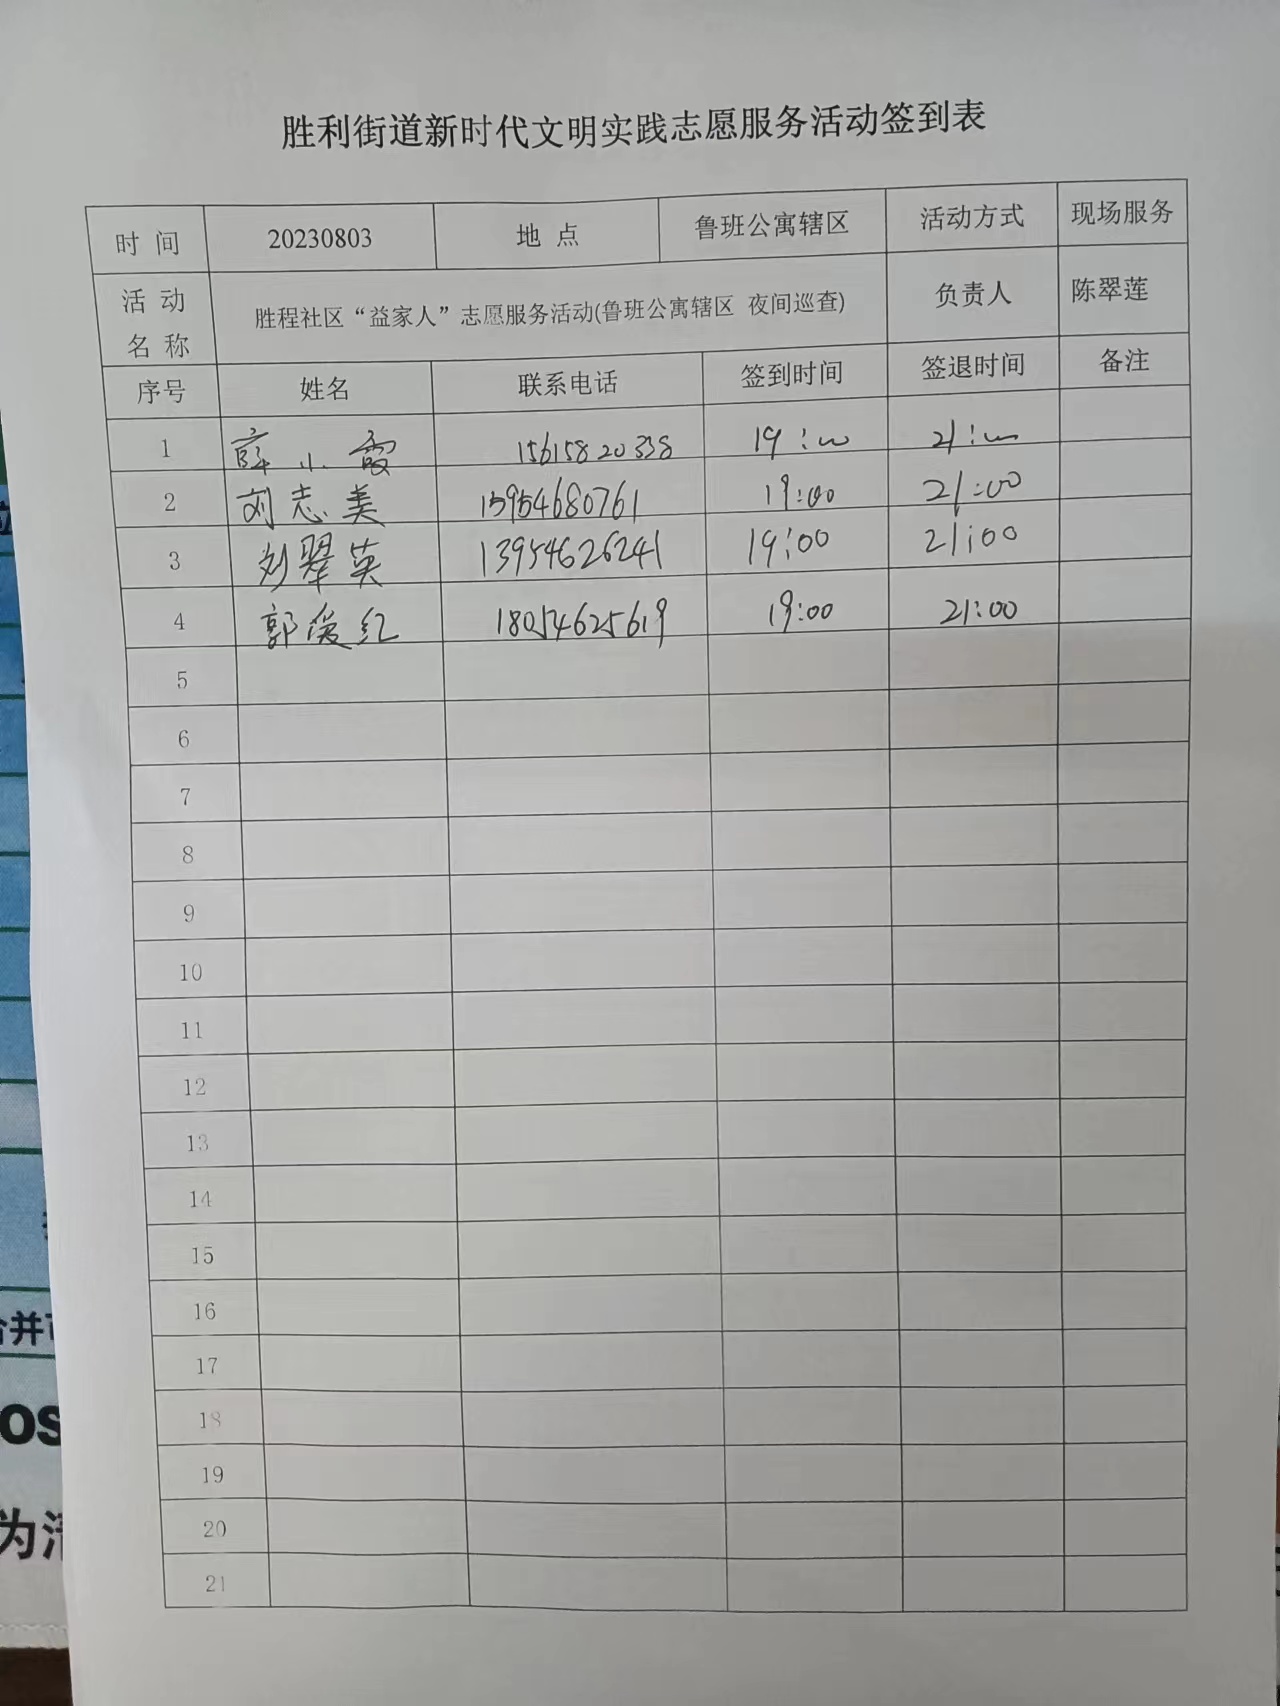 胜利街道新时代文明实践志愿服务活动签到表
时间 20230803 地点 鲁班公寓辖区 活动方式 现场服务
活动名称 胜程社区“益家人”志愿服务活动(鲁班公寓辖区 夜间巡查) 负责人 陈翠莲
序号 姓名 联系电话 签到时间 签退时间 备注
1 薛小霞 15615820338 19:00 21:00
2 刘志美 15954680761 19:00 21:00
3 刘翠英 13954626241 19:00 21:00
4 郭俊红 18054625619 19:00 21:00
5
6
7
8
9
10
11
12
13
14
15
16
17
18
19
20
21
合并
os
为